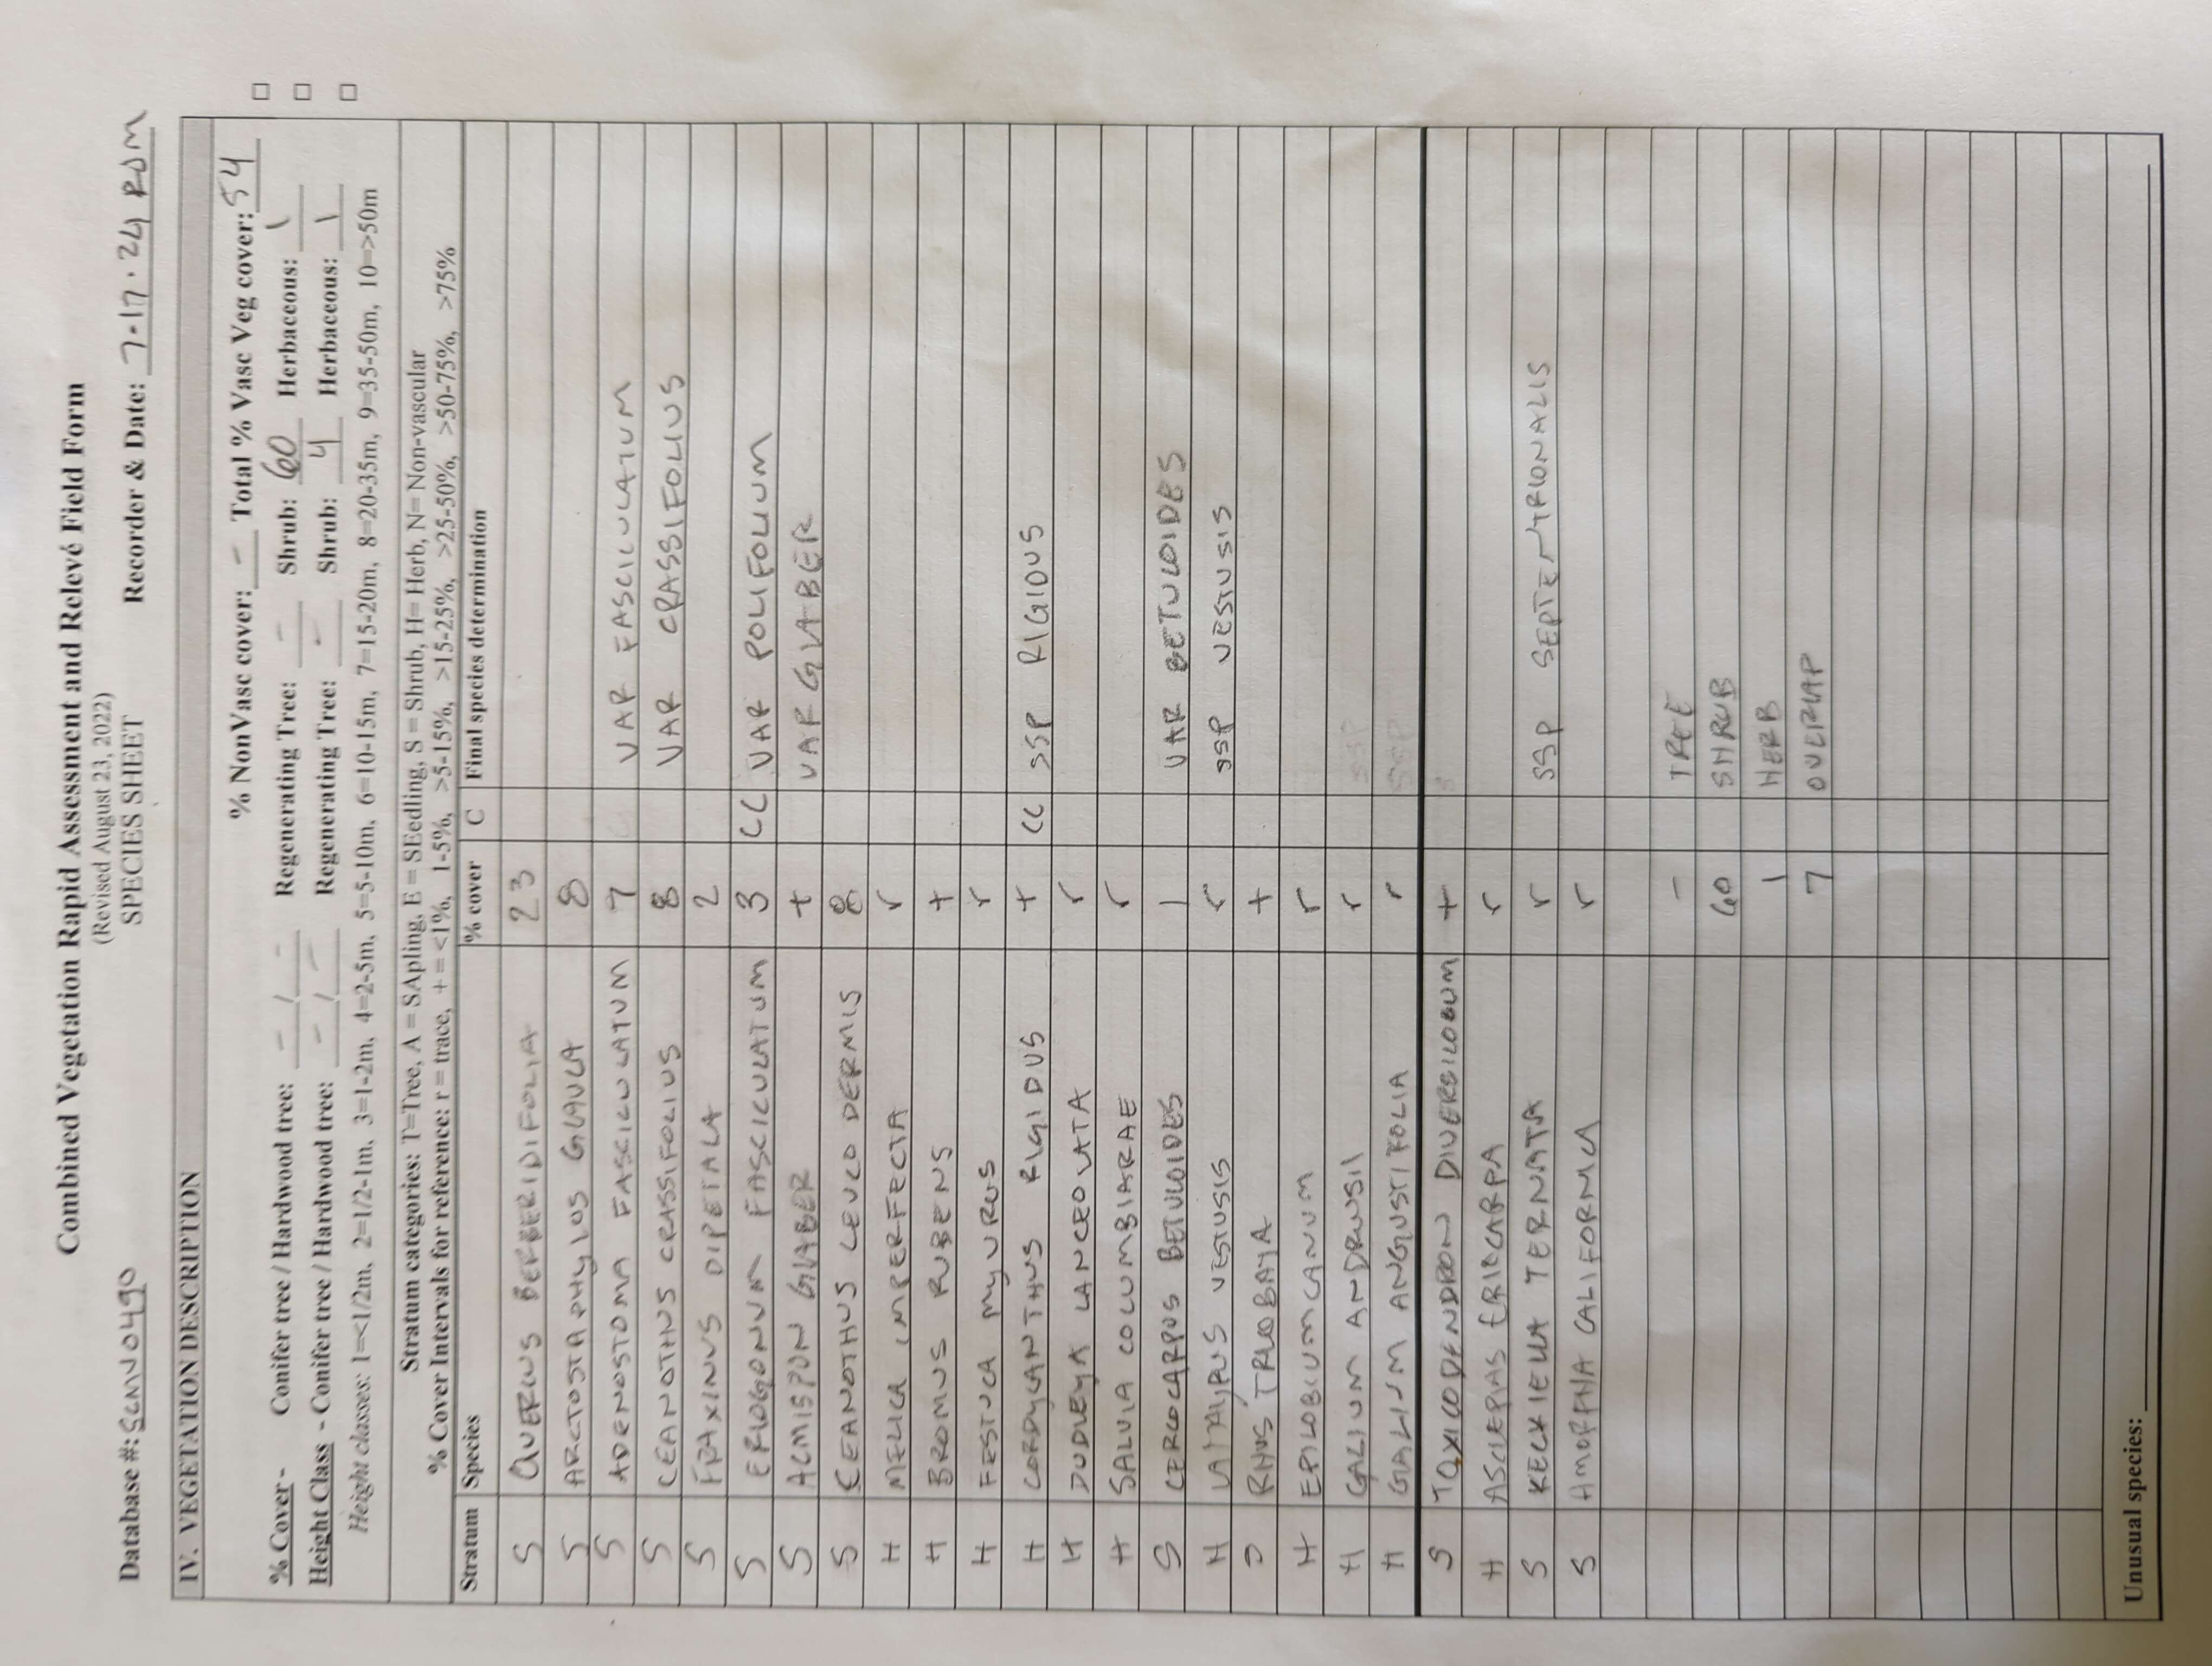 Combined Vegetation Rapid Assessment and Relevé Field Form
(Revised August 23, 2022)
SPECIES SHEET
Database #: SCMN0490 Recorder & Date: 7-17-24 RDM
IV. VEGETATION DESCRIPTION
% NonVasc cover: - Total % Vasc Veg cover: 54 □
% Cover - Conifer tree / Hardwood tree: - / - Regenerating Tree: - Shrub: 60 Herbaceous: 1 □
Height Class - Conifer tree / Hardwood tree: - / - Regenerating Tree: - Shrub: 4 Herbaceous: 1 □
Height classes: 1=<1/2m, 2=1/2-1m, 3=1-2m, 4=2-5m, 5=5-10m, 6=10-15m, 7=15-20m, 8=20-35m, 9=35-50m, 10=>50m
Stratum categories: T=Tree, A = SApling, E = SEedling, S = Shrub, H= Herb, N= Non-vascular
% Cover Intervals for reference: r = trace, + = <1%, 1-5%, >5-15%, >15-25%, >25-50%, >50-75%, >75%
Stratum Species % cover C Final species determination
S QUERCUS BERBERIDIFOLIA 23
S ARCTOSTAPHYLOS GLAUCA 8
S ADENOSTOMA FASCICULATUM 7 VAR FASCICULATUM
S CEANOTHUS CRASSIFOLIUS 8 VAR CRASSIFOLIUS
S FRAXINUS DIPETALA 2
S ERIOGONUM FASCICULATUM 3 CC VAR POLIFOLIUM
S ACMISPON GLABER + VAR GLABER
S CEANOTHUS LEUCODERMIS 8
H MELICA IMPERFECTA r
H BROMUS RUBENS +
H FESTUCA MYUROS r
H CORDYLANTHUS RIGIDUS + CC SSP RIGIDUS
H DUDLEYA LANCEOLATA r
H SALVIA COLUMBIARAE r
S CERCOCARPUS BETULOIDES 1 VAR BETULOIDES
H LATHYRUS VESTUSIS r SSP VESTUSIS
S RHUS TRILOBATA +
H EPILOBIUM CANUM r
H GALIUM ANDRUSII r SSP
H GALIUM ANGUSTIFOLIA r SSP
S TOXICODENDRON DIVERSILOBUM +
H ASCLEPIAS ERIOCARPA r
S KECKIELLA TERNATA r SSP SEPTENTRIONALIS
S AMORPHA CALIFORNICA r
- TREE
60 SHRUB
1 HERB
7 OVERLAP
Unusual species: